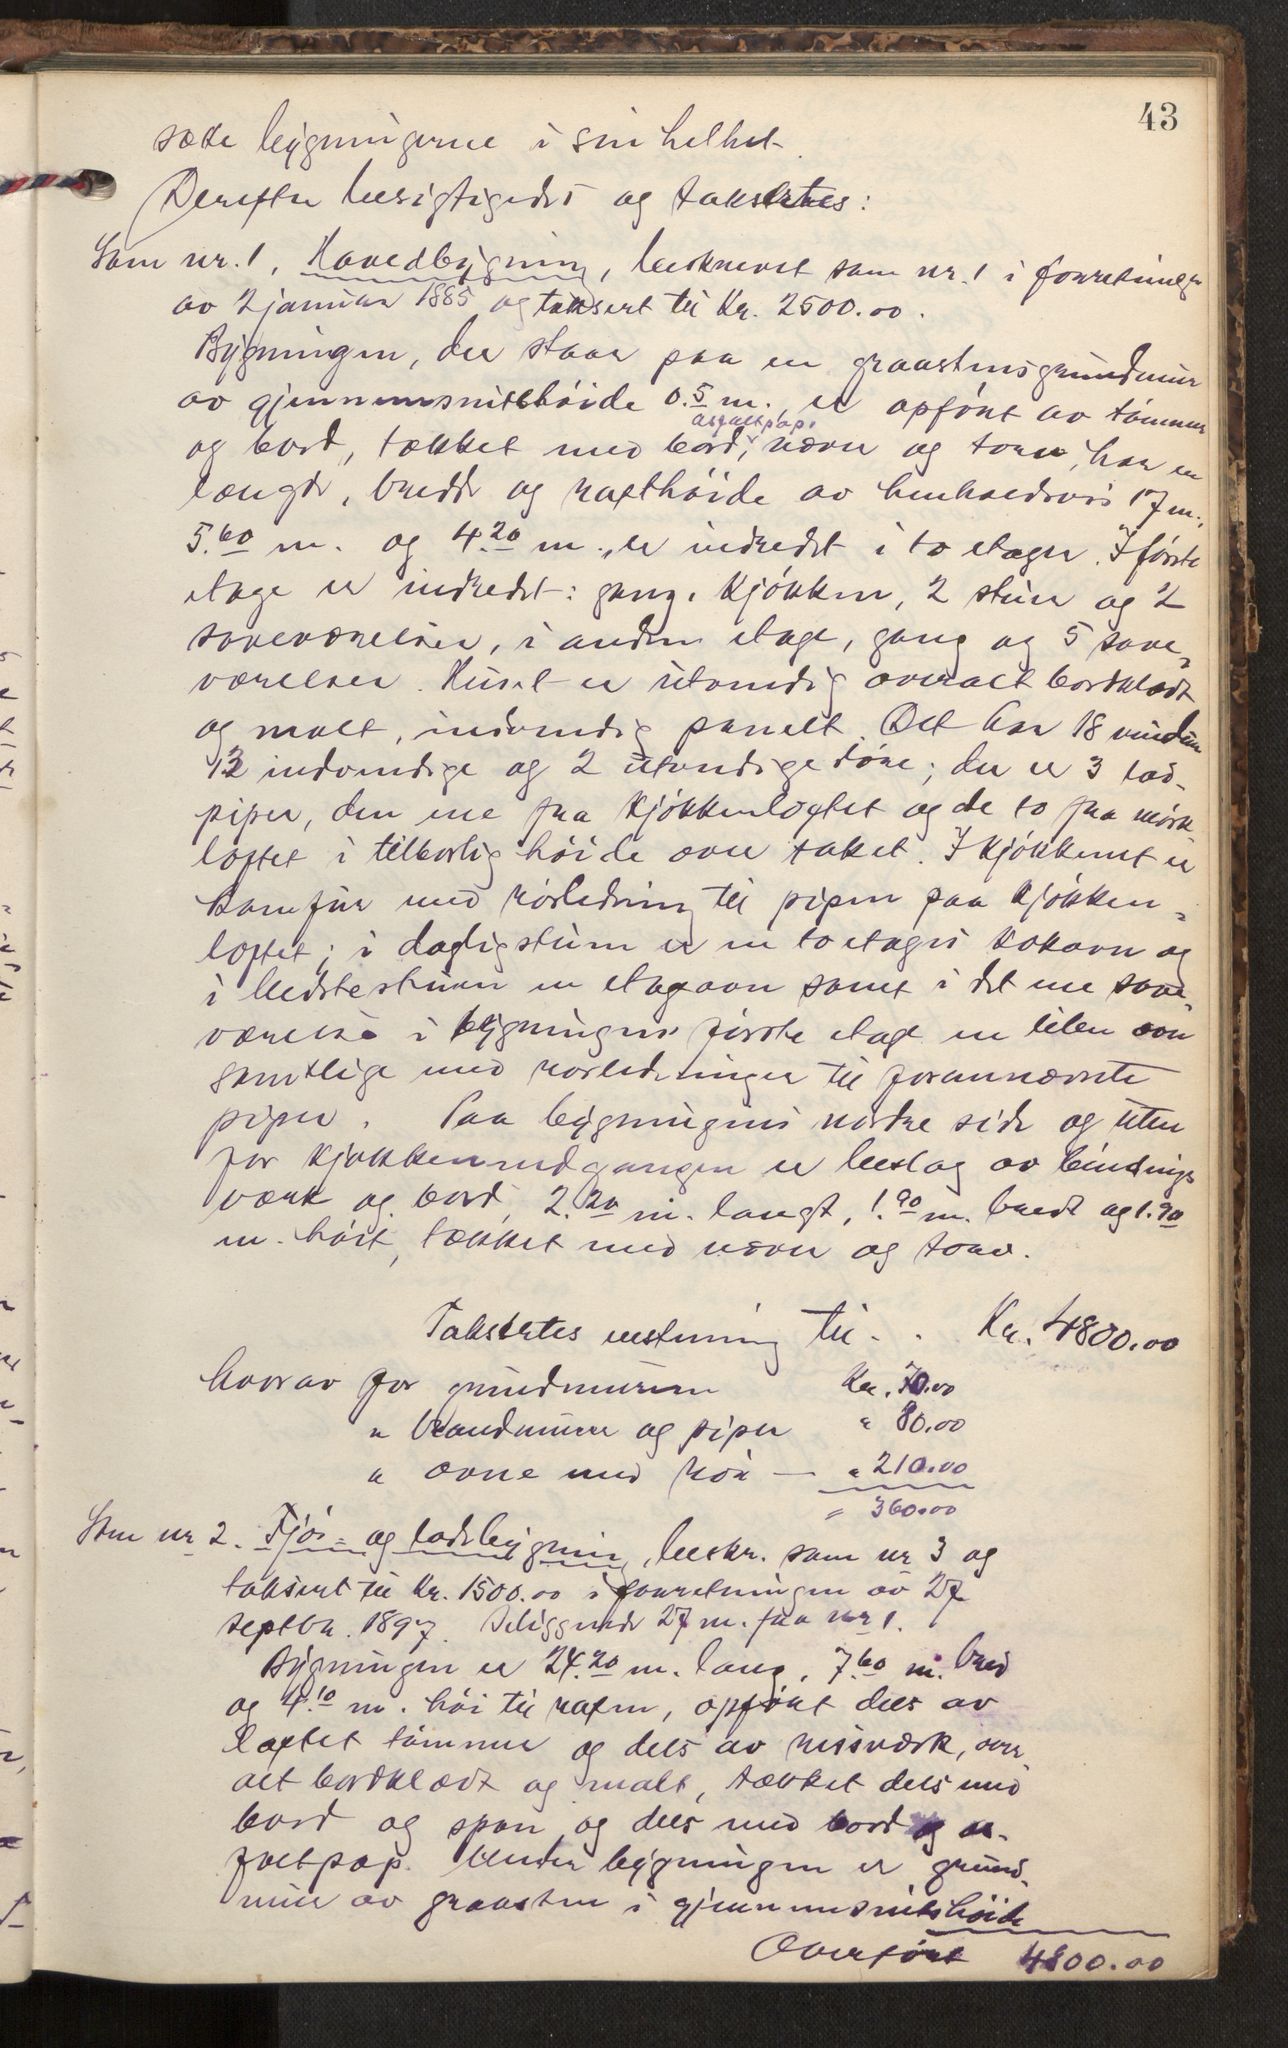 43
sætte bygningerne i sin helhet.
Derefter besigtigedes og taksertes:
Som nr. 1. Hovedbygning, beskrevet som nr. 1 i forretningen
av 2 januar 1885 og taksert til Kr. 2500.00.
Bygningen, der staar paa en graastensgrundmur
av gjennemsnitshøide 0.5 m. er opført av tømmer
asfaltpap,
og bord, tækket med bord, næver og torv, har en
længde, bredde og rafthøide av henholdsvis 17 m.,
5.60 m. og 4.20 m., er indredet i to etager. I første
etage er indredet: gang, kjøkken, 2 stuer og 2
soveværelser, i anden etage, gang og 5 sove-
værelser. Huset er utvendig overalt bordklædt
og malt, indvendig panelt. Det har 18 vinduer
12 indvendige og 2 utvendige døre; der er 3 tod-
piper, den ene fra kjøkkenloftet og de to fra mørk-
loftet i tilbørlig høide over taket. I kjøkkenet er
komfur med rørledning til pipen paa kjøkken-
loftet; i dagligstuen er en toetages kokovn og
i bedstestuen en etageovn samt i det ene sove-
værelse i bygningens første etage en liten ovn
samtlige med rørledninger til forannævnte
piper. Paa bygningens nordre side og uten
for kjøkkenindgangen er beslag av bindings
værk og bord, 2.20 m. langt, 1.90 m. bredt og 1.90
m. høit, tækket med næver og torv.
Takstertes uestning til . . Kr. 4800.00
hvorav for grundmuren Kr. 70.00
" brandmurer og piper " 80.00
" ovne med rør — " 210.00
= 360.00
Som nr 2. Fjøs- og ladebygning, beskr. som nr 3 og
taksert til Kr. 1500.00 i forretningen av 27
septbr. 1897. Beliggende 27 m. fra nr 1.
Bygningen er 24.20 m. lang, 7.60 m. bred
og 4.10 m. høi til raften, opført dels av
laftet tømmer og dels av reisværk, over
alt bordklædt og malt, tækket dels med
bord og spon og dels med bord og as-
faltpap. Under bygningen er grund-
mur av graasten i gjennemsnitshøide
Overført 4800.00